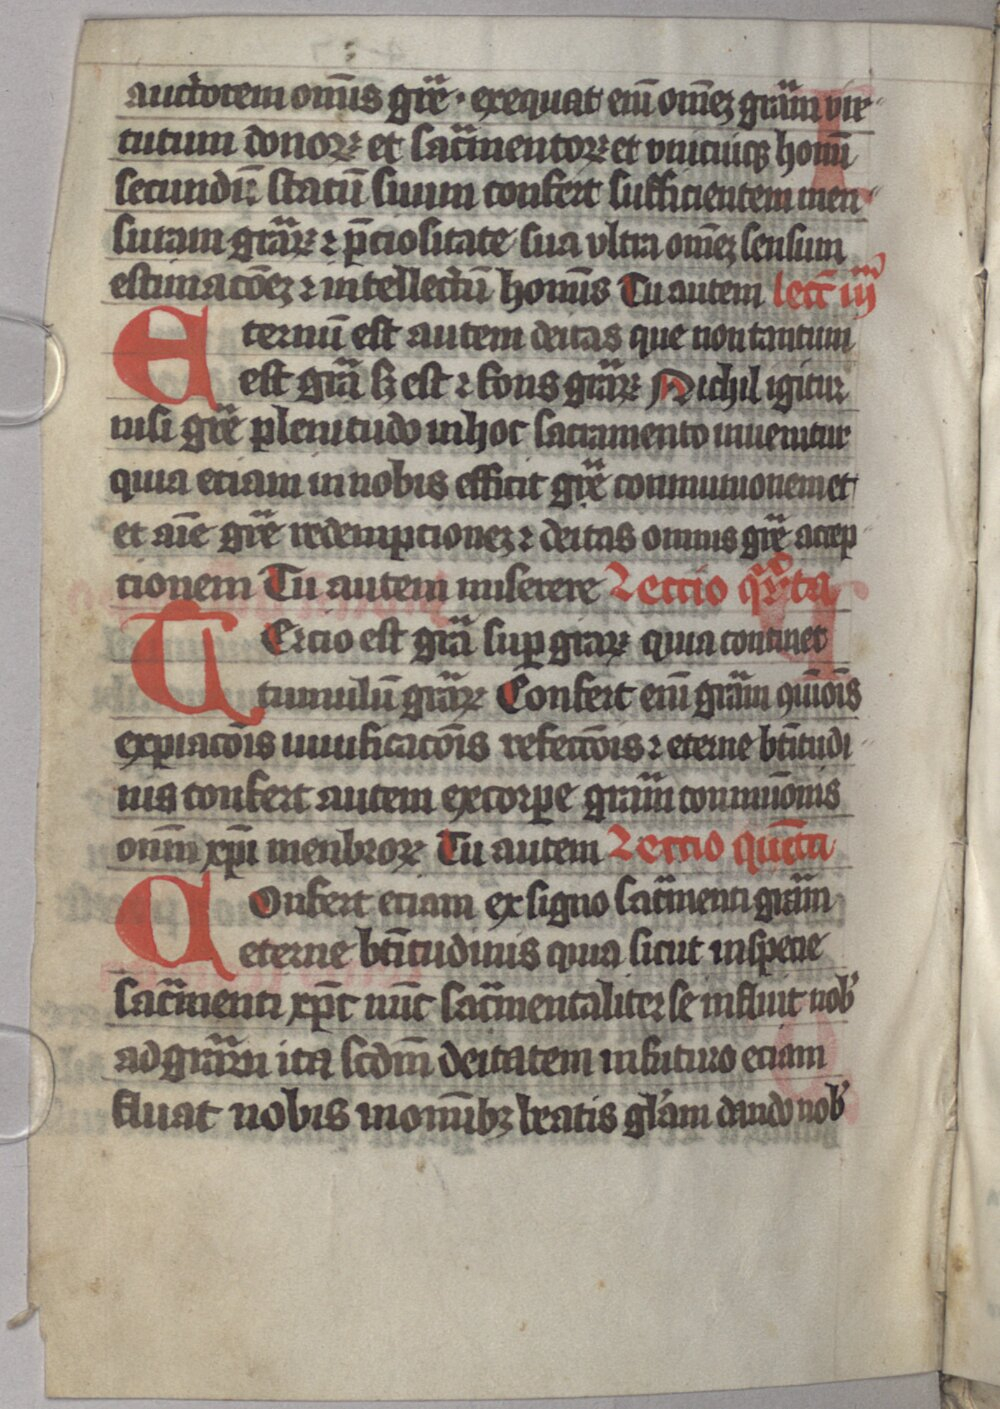 auctorem omīs gr̄e · exequat em̄ om̄eꝫ gr̄am vir-
tutum donoꝝ et sac̄mentoꝝ et vnicuiqꝫ homī
secundū statū suum confert sufficientem men-
suram gr̄aꝝ ⁊ p̄ciositate sua vltra om̄eꝫ sensum
estimac̄oeꝫ ⁊ intellectū homīs Tu autem lecc̄ iij
Eternū est autem deitas que non tantum
est gr̄a sꝫ est ⁊ fons gr̄aꝝ Nichil igitur
nisi gr̄e plenitudo in hoc sacramento inuenitur
quia eciam in nobis efficit gr̄e communionem et
et aīe gr̄e redempcioneꝫ ⁊ deitas omnis gr̄e accep
tionem Tu autem miserere Leccio qr̄ta
TErcio est gr̄a suꝑ graꝝ quia continet
tumulū gr̄aꝝ Confert em̄ gr̄am ꝯuīoīs
expiac̄oīs uiuificac̄oīs refecc̄oīs ⁊ eterne bt̄itudi-
nis confert autem ex corpe gr̄am commūonis
om̄m xp̄i menbroꝝ Tu autem Leccio quīta
COnfert eciam ex signo sac̄menti gr̄am
eterne bt̄itudinis quia sicut in specie
sac̄menti xp̄c nūc sac̄mentaliter se influit nob̓
ad gr̄am ita scdm̄ deitatem in futuro eciam
fluat nobis in om̄ibꝫ beatis gl̓am dando nob̓